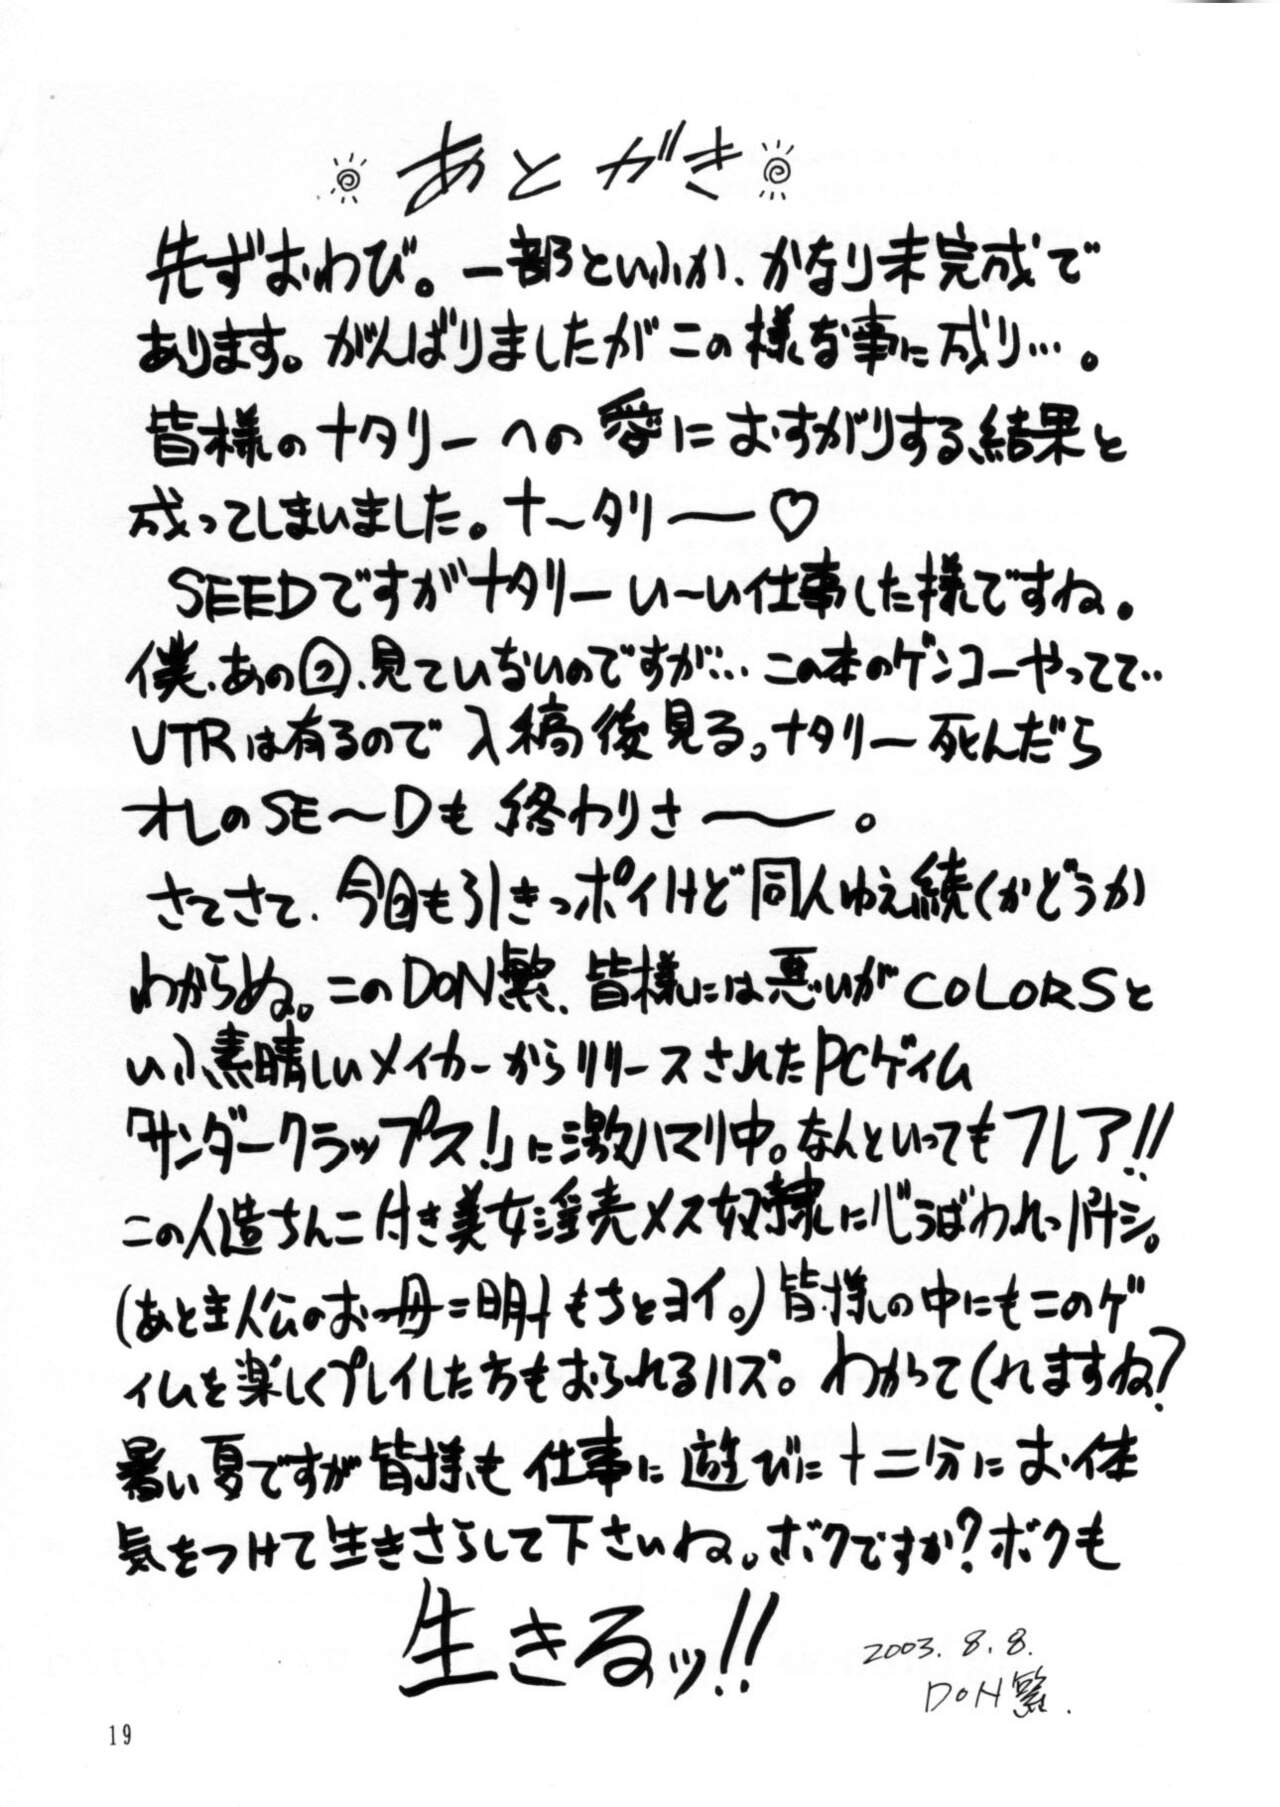 あとがき
先ずおわび。一部といふか、かなり未完成で
あります。がんばりましたがこの様な事に成り…。
皆様のナタリーへの愛におすがりする結果と
成ってしまいました。ナ〜タリー♡
SEEDですがナタリーい〜い仕事した様ですね。
僕、あの回、見ていないのですが… この本のゲンコーやってて‥
VTRは有るので入稿後見る。ナタリー死んだら
オレのSE〜Dも終わりさ〜。
さてさて、今回も引きっポイけど同人ゆえ続くかどうか
わからぬ。このDON繁、皆様には悪いがCOLORSと
いふ素晴しいメイカーからリリースされたPCゲイム
「サンダークラップス!」に激ハマり中。なんといってもフレア!!
この人造ちんこ付き美女淫売メス奴隷に心うばわれっパナシ。
(あと主人公のお母=明もちとヨイ。)皆様の中にもこのゲ
イムを楽しくプレイした方もおられるハズ。わかってくれますね?
暑い夏ですが皆様も仕事に遊びに十二分にお体
気をつけて生きさらして下さいね。ボクですか?ボクも
生きるッ!!
2003. 8. 8.
DON繁.
19